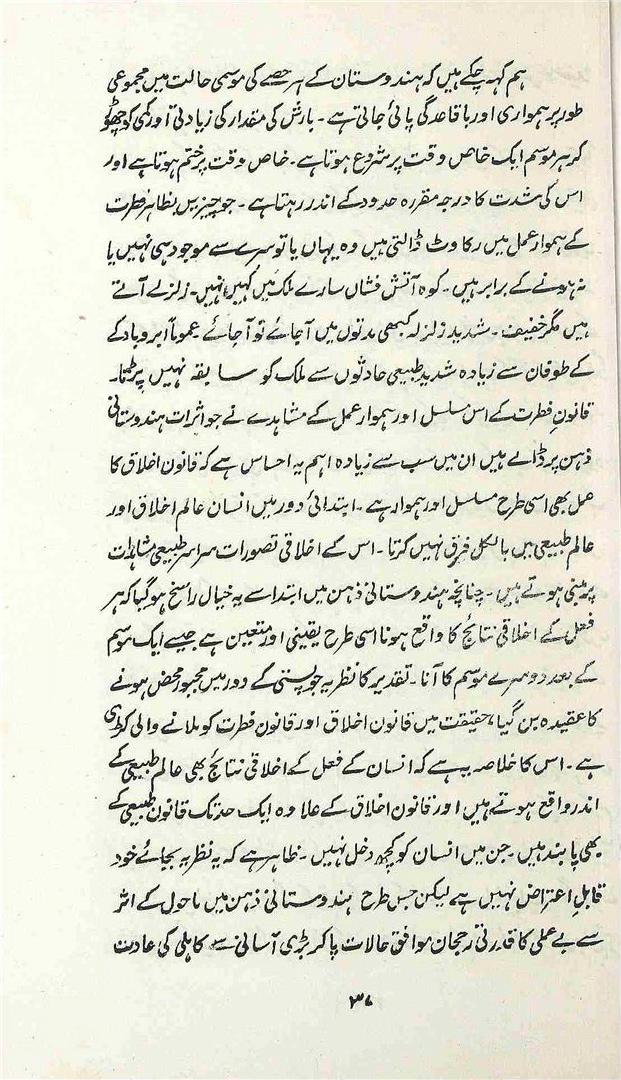 ہم کہہ چکے ہیں کہ ہندوستان کے ہر حصے کی موسمی حالت میں مجموعی
طور پر ہمواری اور باقاعدگی پائی جاتی ہے۔ بارش کی مقدار کی زیادتی اور کمی کو چھوڑ
کر ہر موسم ایک خاص وقت پر شروع ہوتا ہے۔ خاص وقت پر ختم ہوتا ہے اور
اس کی شدت کا درجہ مقررہ حدود کے اندر رہتا ہے۔ جو چیزیں بظاہر فطرت
کے ہموار عمل میں رکاوٹ ڈالتی ہیں وہ یہاں یا تو سرے سے موجود ہی نہیں یا
نہ ہونے کے برابر ہیں۔ کوہ آتش فشاں سارے ملک میں کہیں نہیں۔ زلزلے آتے
ہیں مگر خفیف۔ شدید زلزلہ کبھی مدتوں میں آجائے تو آجائے۔ عموماً ابر و باد کے
کے طوفان سے زیادہ شدید طبیعی حادثوں سے ملک کو سابقہ نہیں پڑتا۔
قانونِ فطرت کے اس مسلسل اور ہموار عمل کے مشاہدے نے جو اثرات ہندوستانی
ذہن پر ڈالے ہیں ان میں سب سے زیادہ اہم یہ احساس ہے کہ قانون اخلاق کا
عمل بھی اسی طرح مسلسل اور ہموار ہے۔ ابتدائی دور میں انسان عالم اخلاق اور
عالم طبیعی میں بالکل فرق نہیں کرتا۔ اس کے اخلاقی تصورات سراسر طبیعی مشاہدات
پر مبنی ہوتے ہیں۔ چنانچہ ہندوستانی ذہن میں ابتدا سے یہ خیال راسخ ہو گیا کہ ہر
فعل کے اخلاقی نتائج کا واقع ہونا اسی طرح یقینی اور متعین ہے جیسے ایک موسم
کے بعد دوسرے موسم کا آنا۔ تقدیر کا نظریہ جو پستی کے دور میں مجبور محض ہونے
کا عقیدہ بن گیا، حقیقت میں قانون اخلاق اور قانون فطرت کو ملانے والی کڑی
ہے۔ اس کا خلاصہ یہ ہے کہ انسان کے فعل کے اخلاقی نتائج بھی عالم طبیعی کے
اندر واقع ہوتے ہیں اور قانون اخلاق کے علاوہ ایک حد تک قانون طبیعی کے
بھی پابند ہیں۔ جن میں انسان کو کچھ دخل نہیں۔ ظاہر ہے کہ یہ نظریہ بجائے خود
قابل اعتراض نہیں ہے لیکن جس طرح ہندوستانی ذہن میں ماحول کے اثر
سے بے عملی کا قدرتی رجحان موافق حالات پا کر بڑی آسانی سے کاہلی کی عادت
۳۷